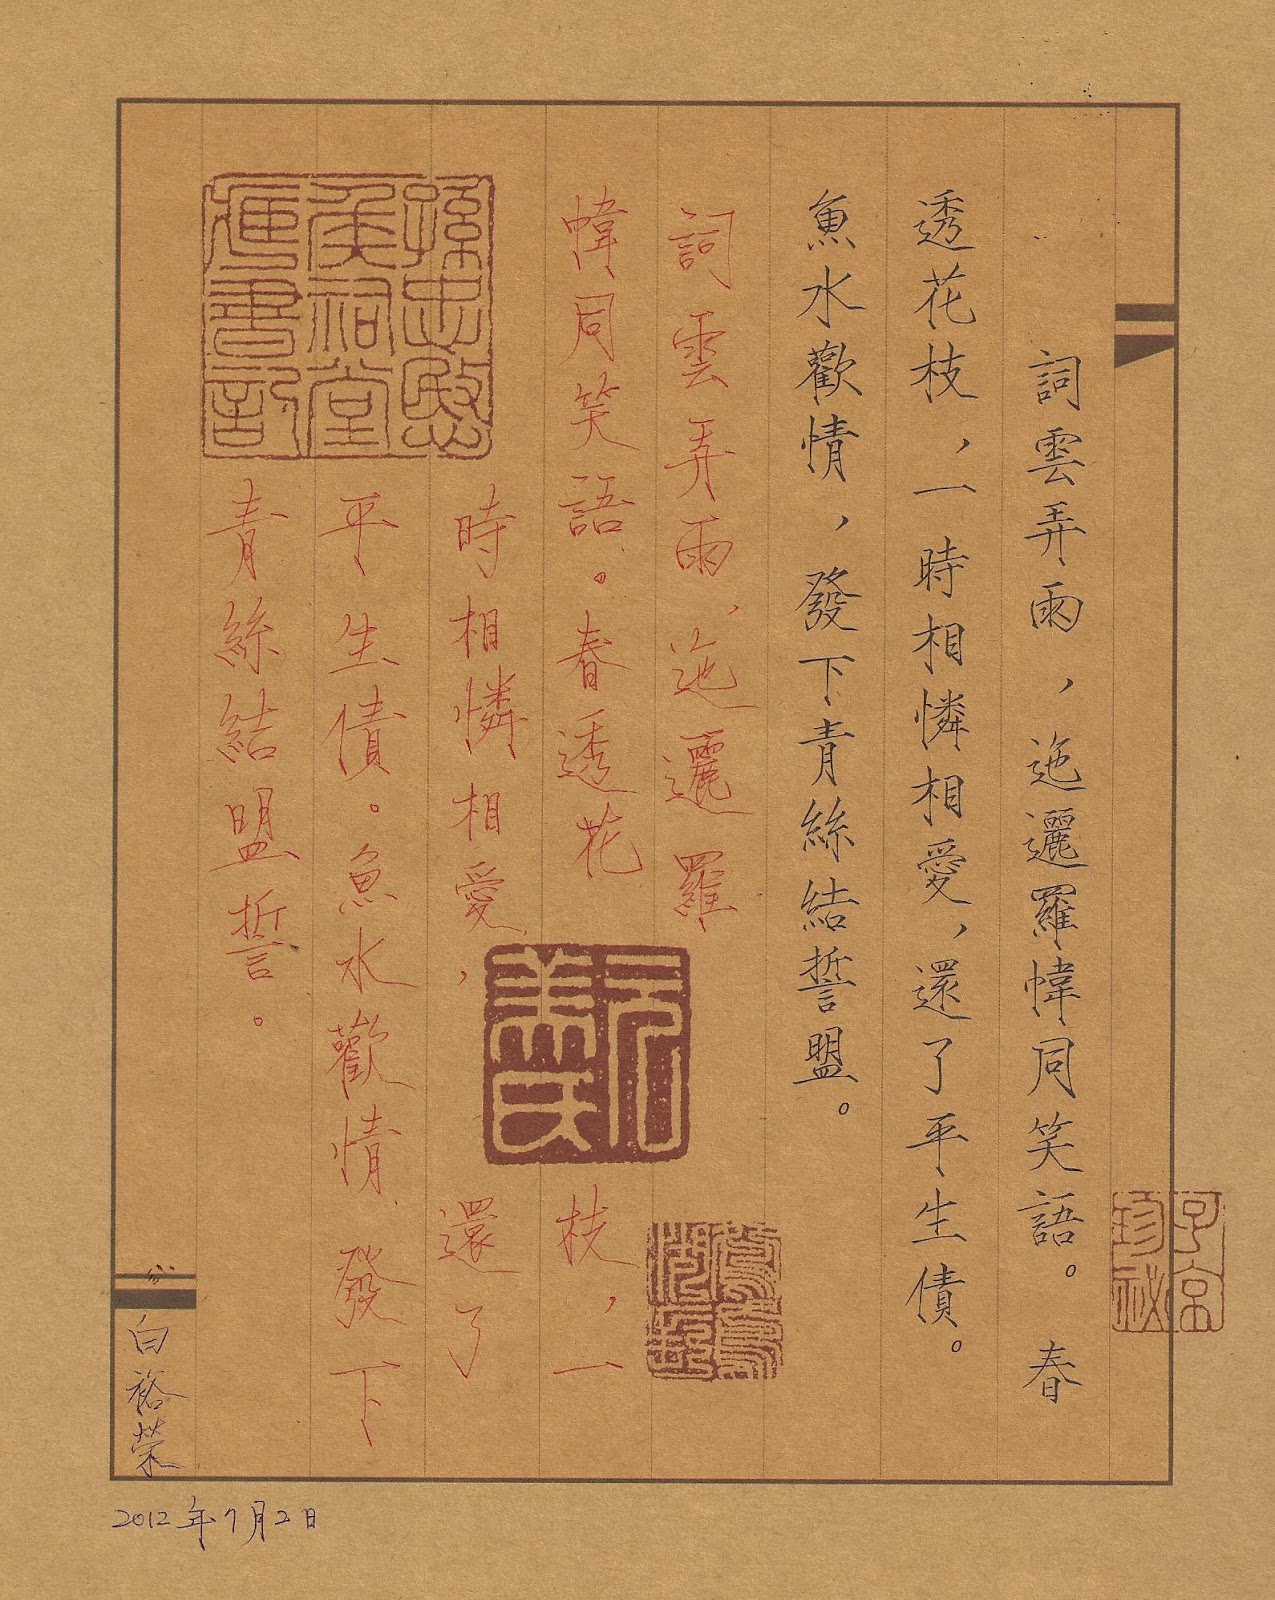 子京
珍祕
詞雲弄雨，迤邐羅幃同笑語。春
透花枝，一時相憐相愛，還了平生債。
魚水歡情，發下青絲結誓盟。
詞雲弄雨，迤邐羅
幃同笑語。春透花枝，一
時相憐相愛，還了
平生債。魚水歡情，發下
青絲結盟誓。
孫忠愍
侯祠堂
藏書記
白裕榮
2012年7月2日